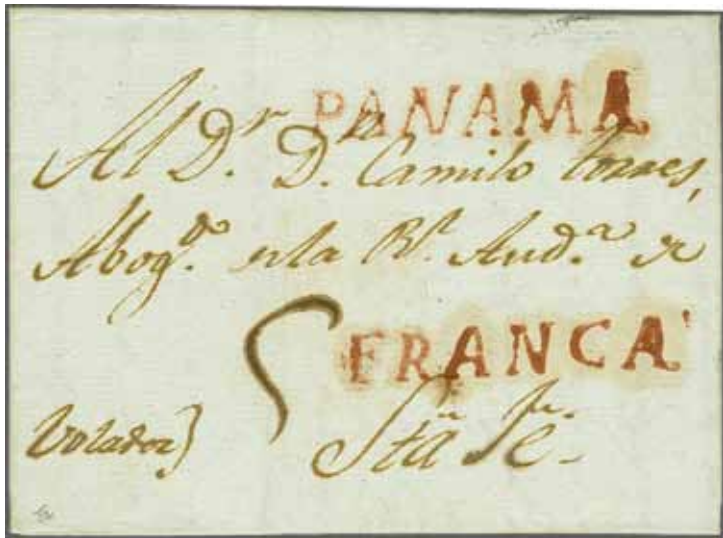 PANAMA
Al D.r D.n Camilo torres,
Abog.do en la R.l Aud.a de
FRANCA
Volador) Sta Fe.